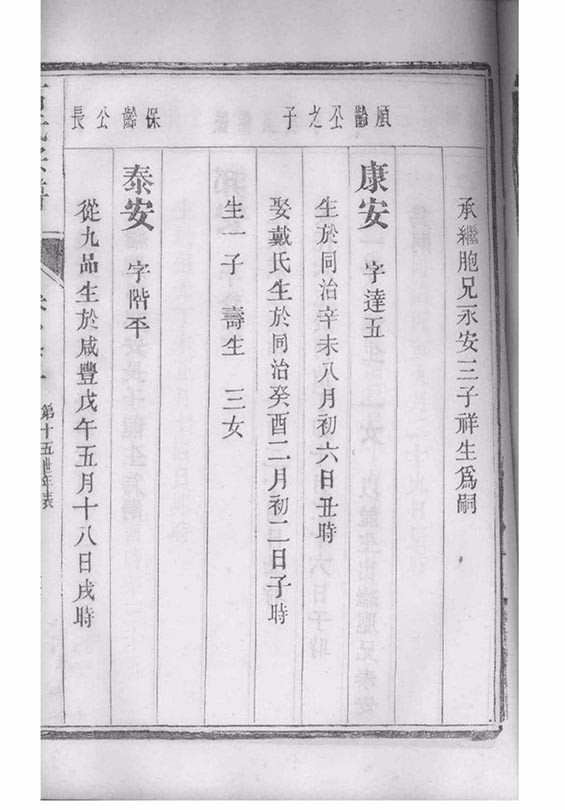 承繼胞兄永安三子祥生爲嗣
順齡公之子
康安 字達五
生於同治辛未八月初六日丑時
娶戴氏生於同治癸酉二月初二日子時
生一子 壽生 三女
保齡公長
泰安 字階平
從九品生於咸豐戊午五月十八日戌時
第十五世年表